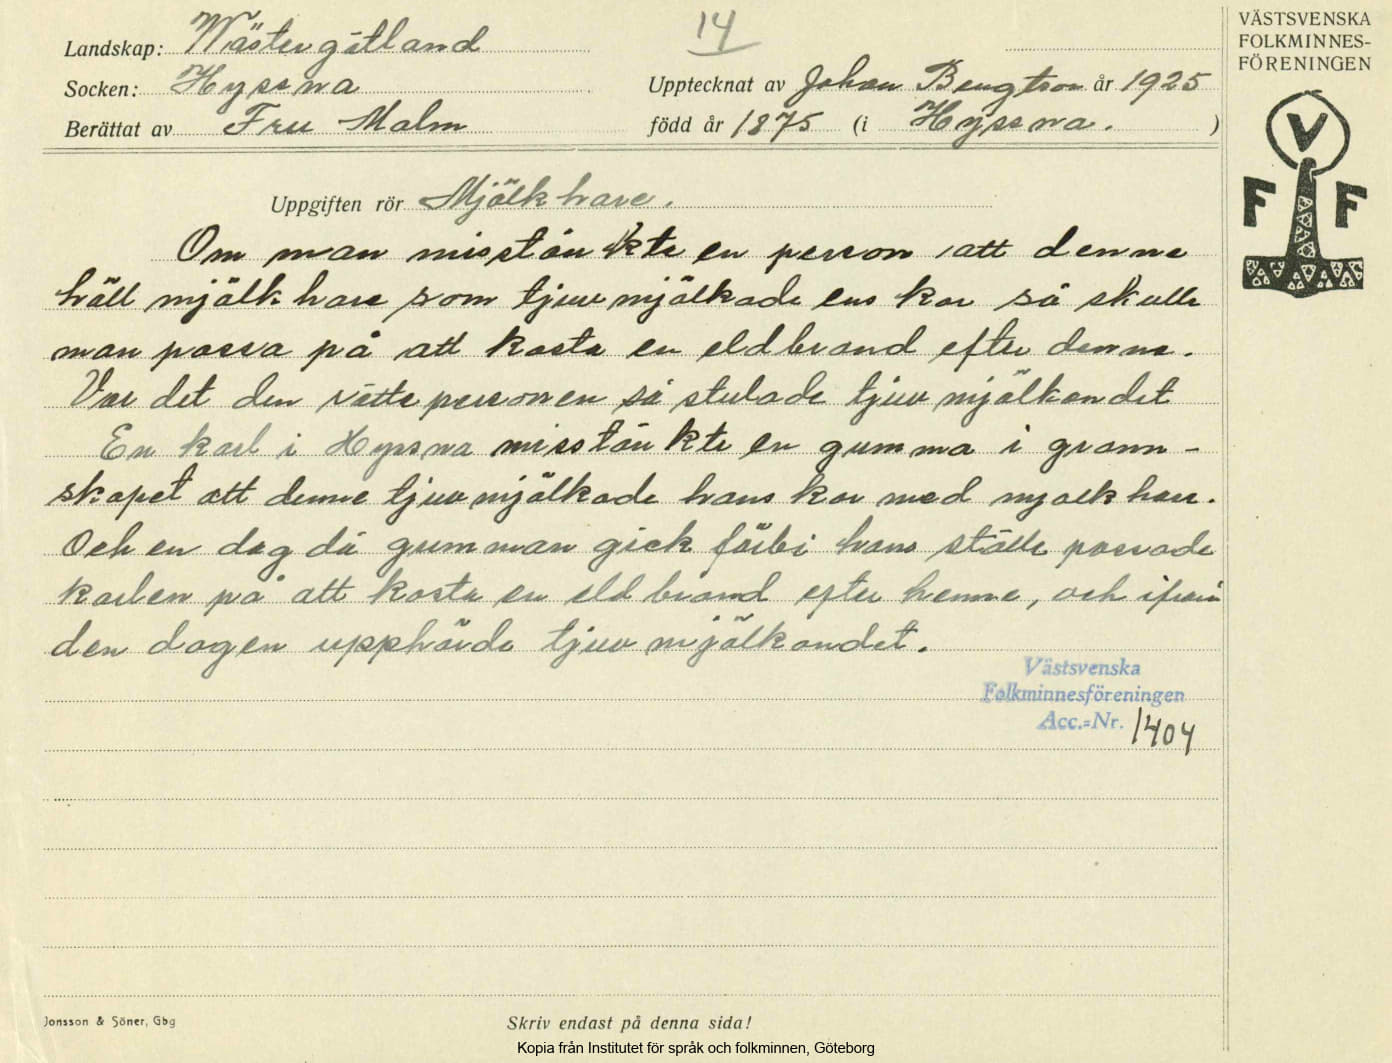 14
VÄSTSVENSKA
FOLKMINNES-
FÖRENINGEN
Landskap: Wästergötland
Socken: Hyssna
Upptecknat av Johan Bengtson år 1925
Berättat av Fru Malm
född år 1875 (i Hyssna. )
V
F F
Uppgiften rör Mjölkhare.
Om man misstänkte en person att denne
höll mjölkhare som tjuvmjölkade ens kor så skulle
man passa på att kasta en eldbrand efter denne.
Var det den rätte personen så slutade tjuvmjölkandet
En karl i Hyssna misstänkte en gumma i grann-
skapet att denne tjuvmjölkade hans kor med mjölkhare.
Och en dag då gumman gick förbi hans ställe passade
karlen på att kasta en eldbrand efter henne, och ifrån
den dagen upphörde tjuvmjölkandet.
Västsvenska
Folkminnesföreningen
Acc.=Nr. 1404
Jonsson & Söner, Gbg
Skriv endast på denna sida!
Kopia från Institutet för språk och folkminnen, Göteborg